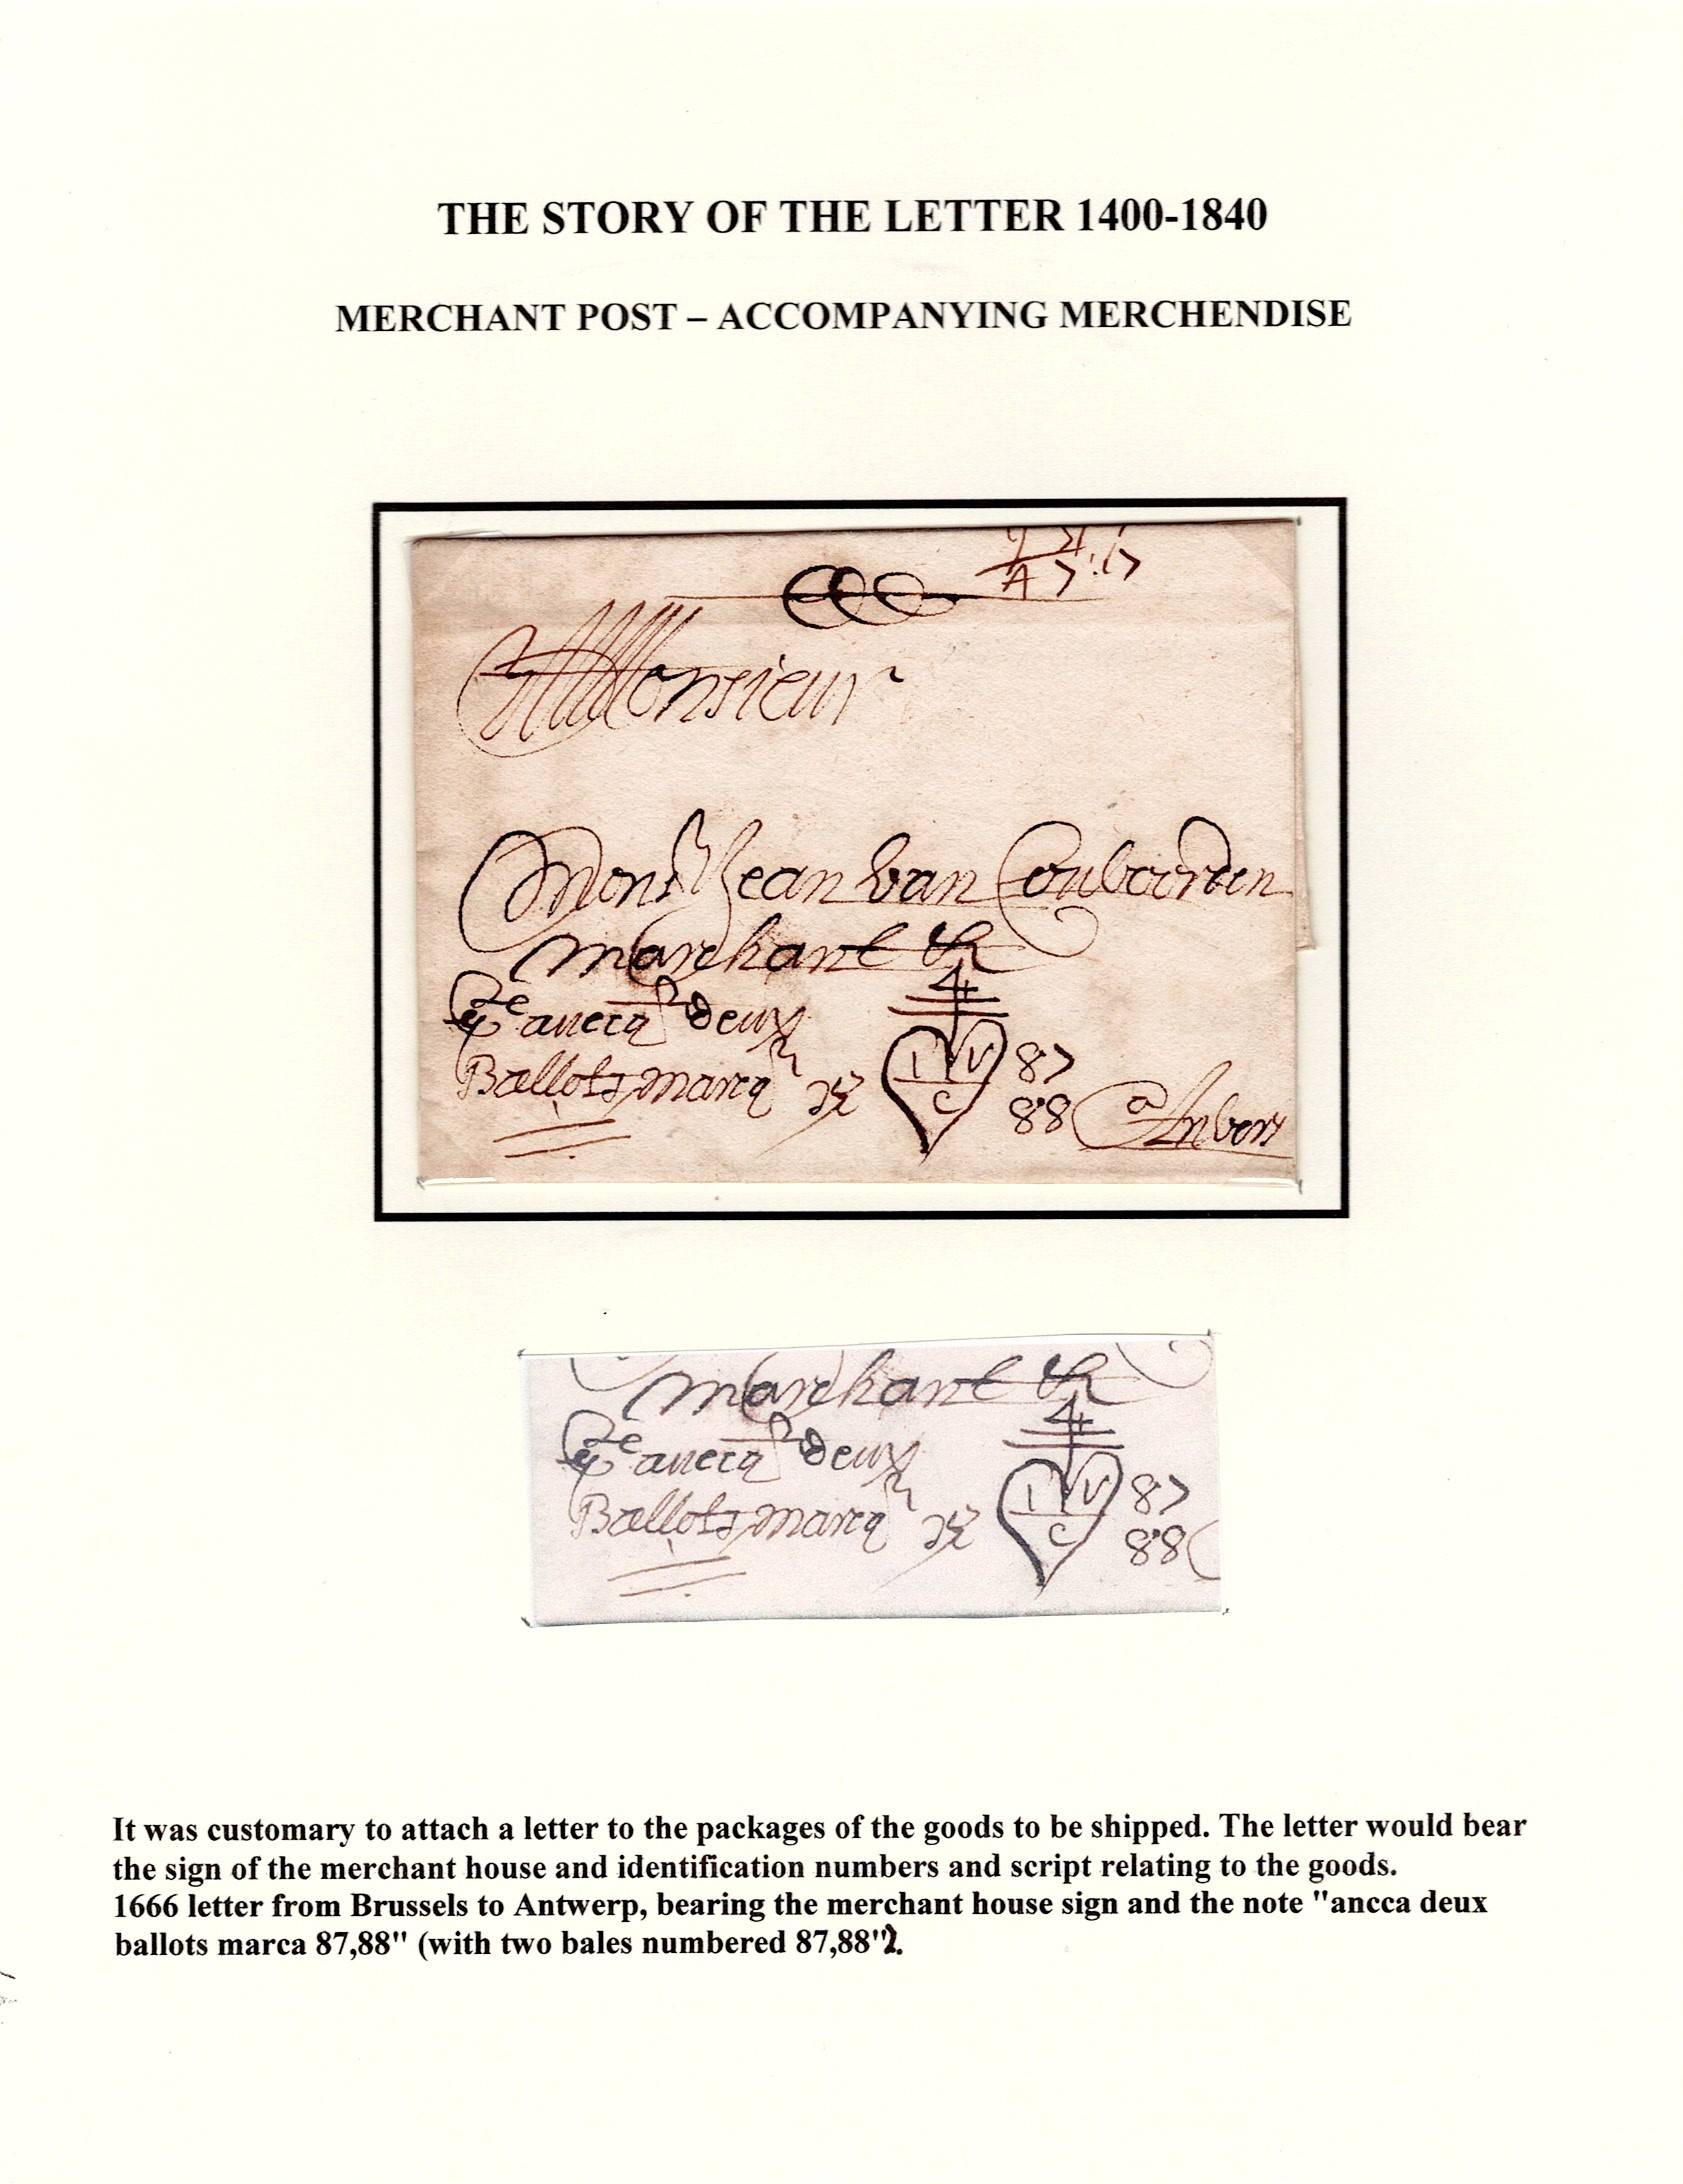 THE STORY OF THE LETTER 1400-1840
MERCHANT POST – ACCOMPANYING MERCHENDISE
Monsieur
Monsr Jean van Couboorden
Marchant
avecq deux
Ballots marcq
I V
C
87
88
a Anvers
Marchant
avecq deux
Ballots marcq
I V
C
87
88
It was customary to attach a letter to the packages of the goods to be shipped. The letter would bear
the sign of the merchant house and identification numbers and script relating to the goods.
1666 letter from Brussels to Antwerp, bearing the merchant house sign and the note "ancca deux
ballots marca 87,88" (with two bales numbered 87,88").